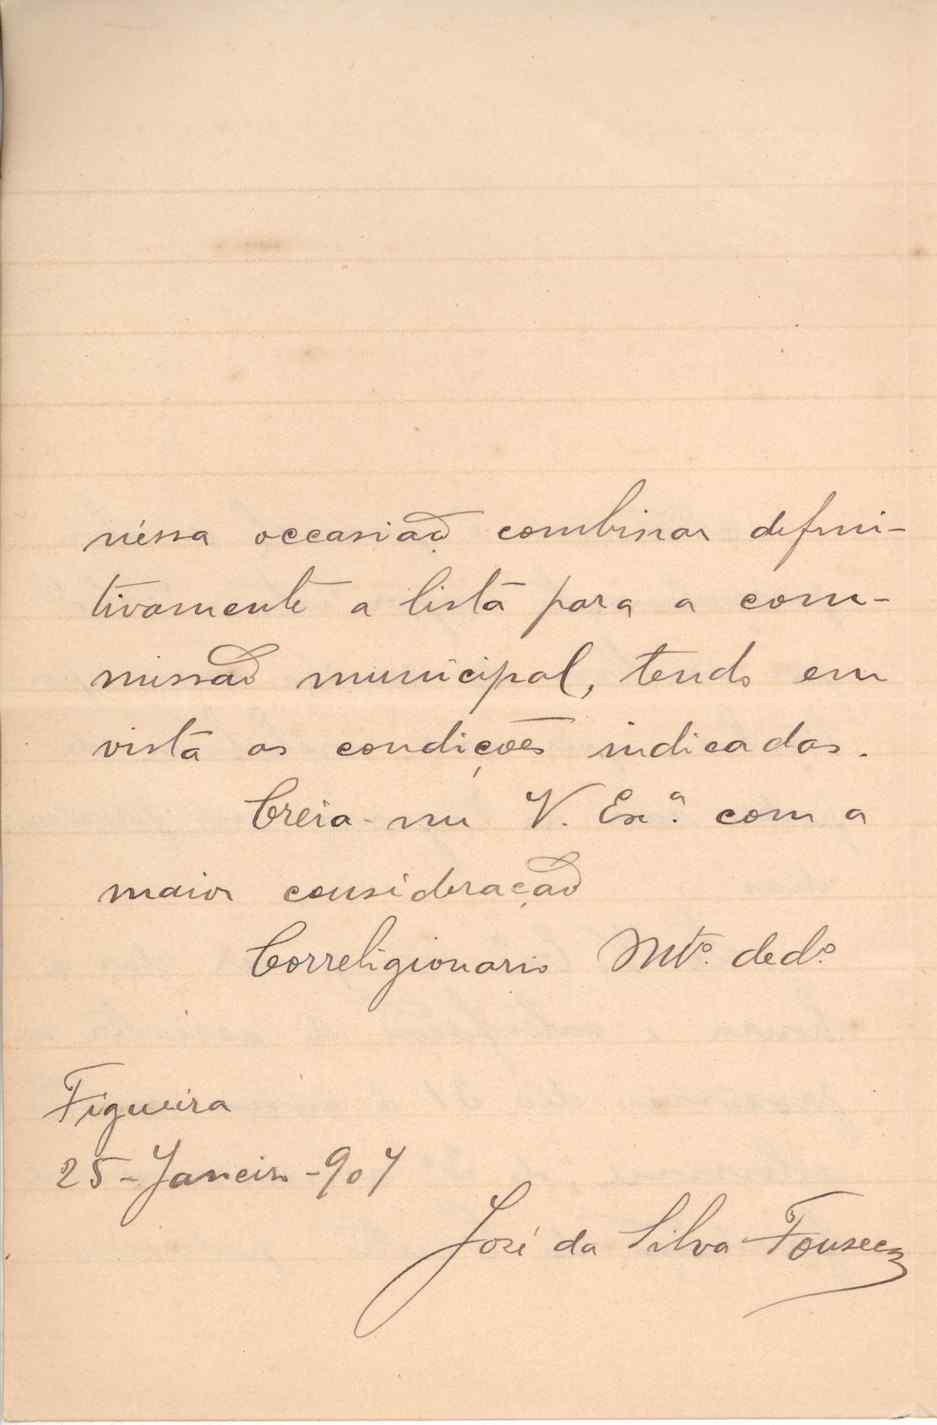 néssa occasiaõ combinar defini-
tivamente a lista para a com-
missaõ municipal, tendo em
vista as condições indicadas.
Creia-me V. Ex.ª com a
maior consideraçaõ
Correligionario Mtº. dedº.
Figueira
25-Janeiro-907
José da Silva Fonseca